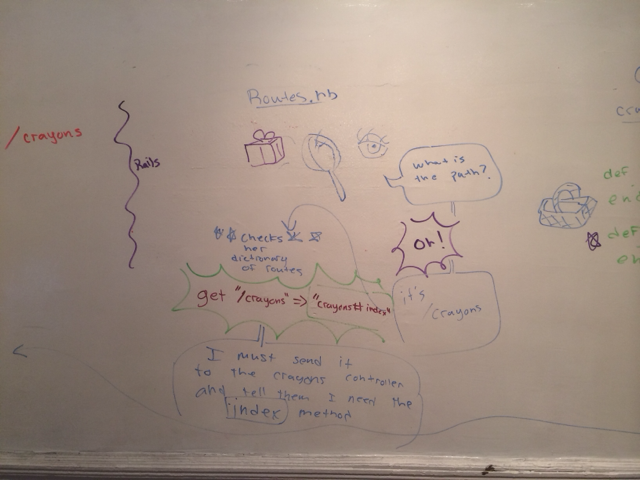 Routes.rb
/crayons
Rails
what is
the path?
checks
her
dictionary
of routes
oh!
get "/crayons" => "crayons#index"
it's
/crayons
I must send it
to the crayons controller
and tell them I need the
index method
def
def